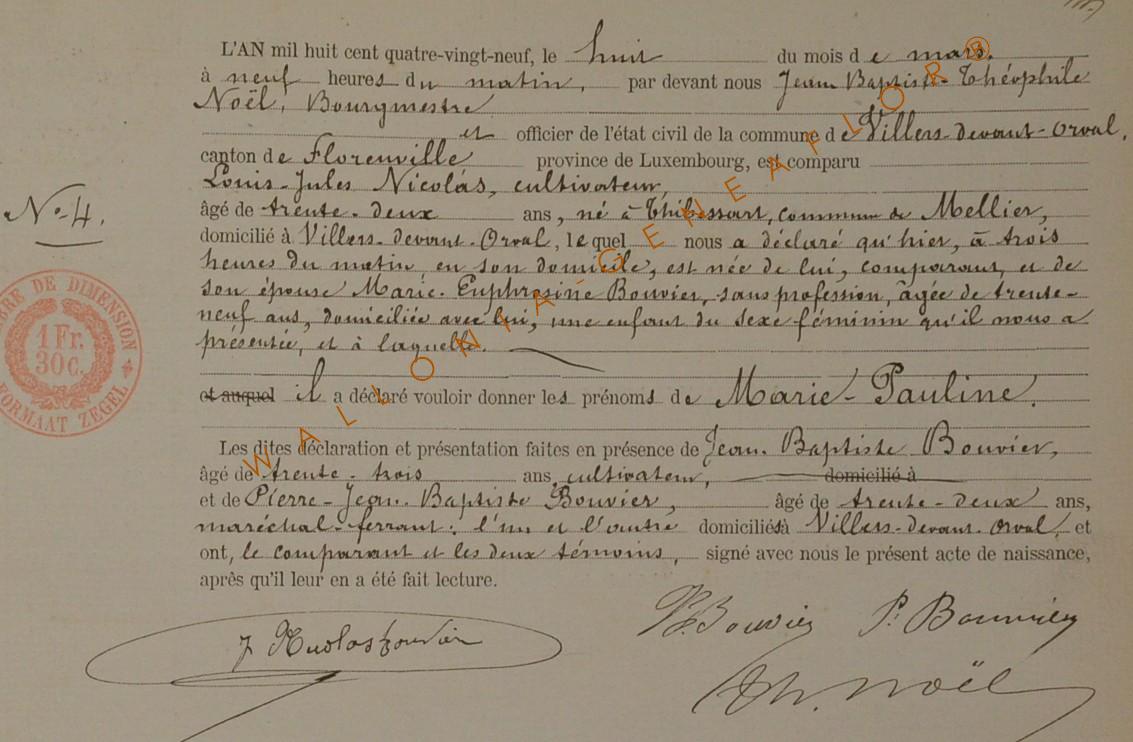 L'AN mil huit cent quatre-vingt-neuf, le huit du mois de mars,
à neuf heures du matin, par devant nous Jean Baptiste-Théophile
Noël, Bourgmestre
et officier de l'état civil de la commune de Villers-devant-Orval,
canton de Florenville province de Luxembourg, est comparu
Louis-Jules Nicolas, cultivateur,
N°-4.
âgé de trente-deux ans, né à Thibessart, commune de Mellier,
domicilié à Villers-devant-Orval, lequel nous a déclaré qu'hier, à trois
heures du matin, en son domicile, est née de lui, comparant, et de
son épouse Marie-Euphrosine Bouvier, sans profession, âgée de trente-
neuf ans, domiciliée avec lui, une enfant du sexe féminin qu'il nous a
présentée, et à laquelle.
et auquel il a déclaré vouloir donner les prénoms de Marie-Pauline.
Les dites déclaration et présentation faites en présence de Jean-Baptiste Bouvier,
âgé de trente-trois ans, cultivateur, domicilié à
et de Pierre-Jean-Baptiste Bouvier, âgé de trente-deux ans,
maréchal-ferrant; l'un et l'autre domiciliés à Villers-devant-Orval, et
ont, le comparant et les deux témoins, signé avec nous le présent acte de naissance,
après qu'il leur en a été fait lecture.
J Nicolas bouvier
Bouvier P. Bouvier
Th. Noël
DE DIMENSION
1 Fr.
30c.
FORMAAT ZEGEL
WALLONIA GENEAFLOR®